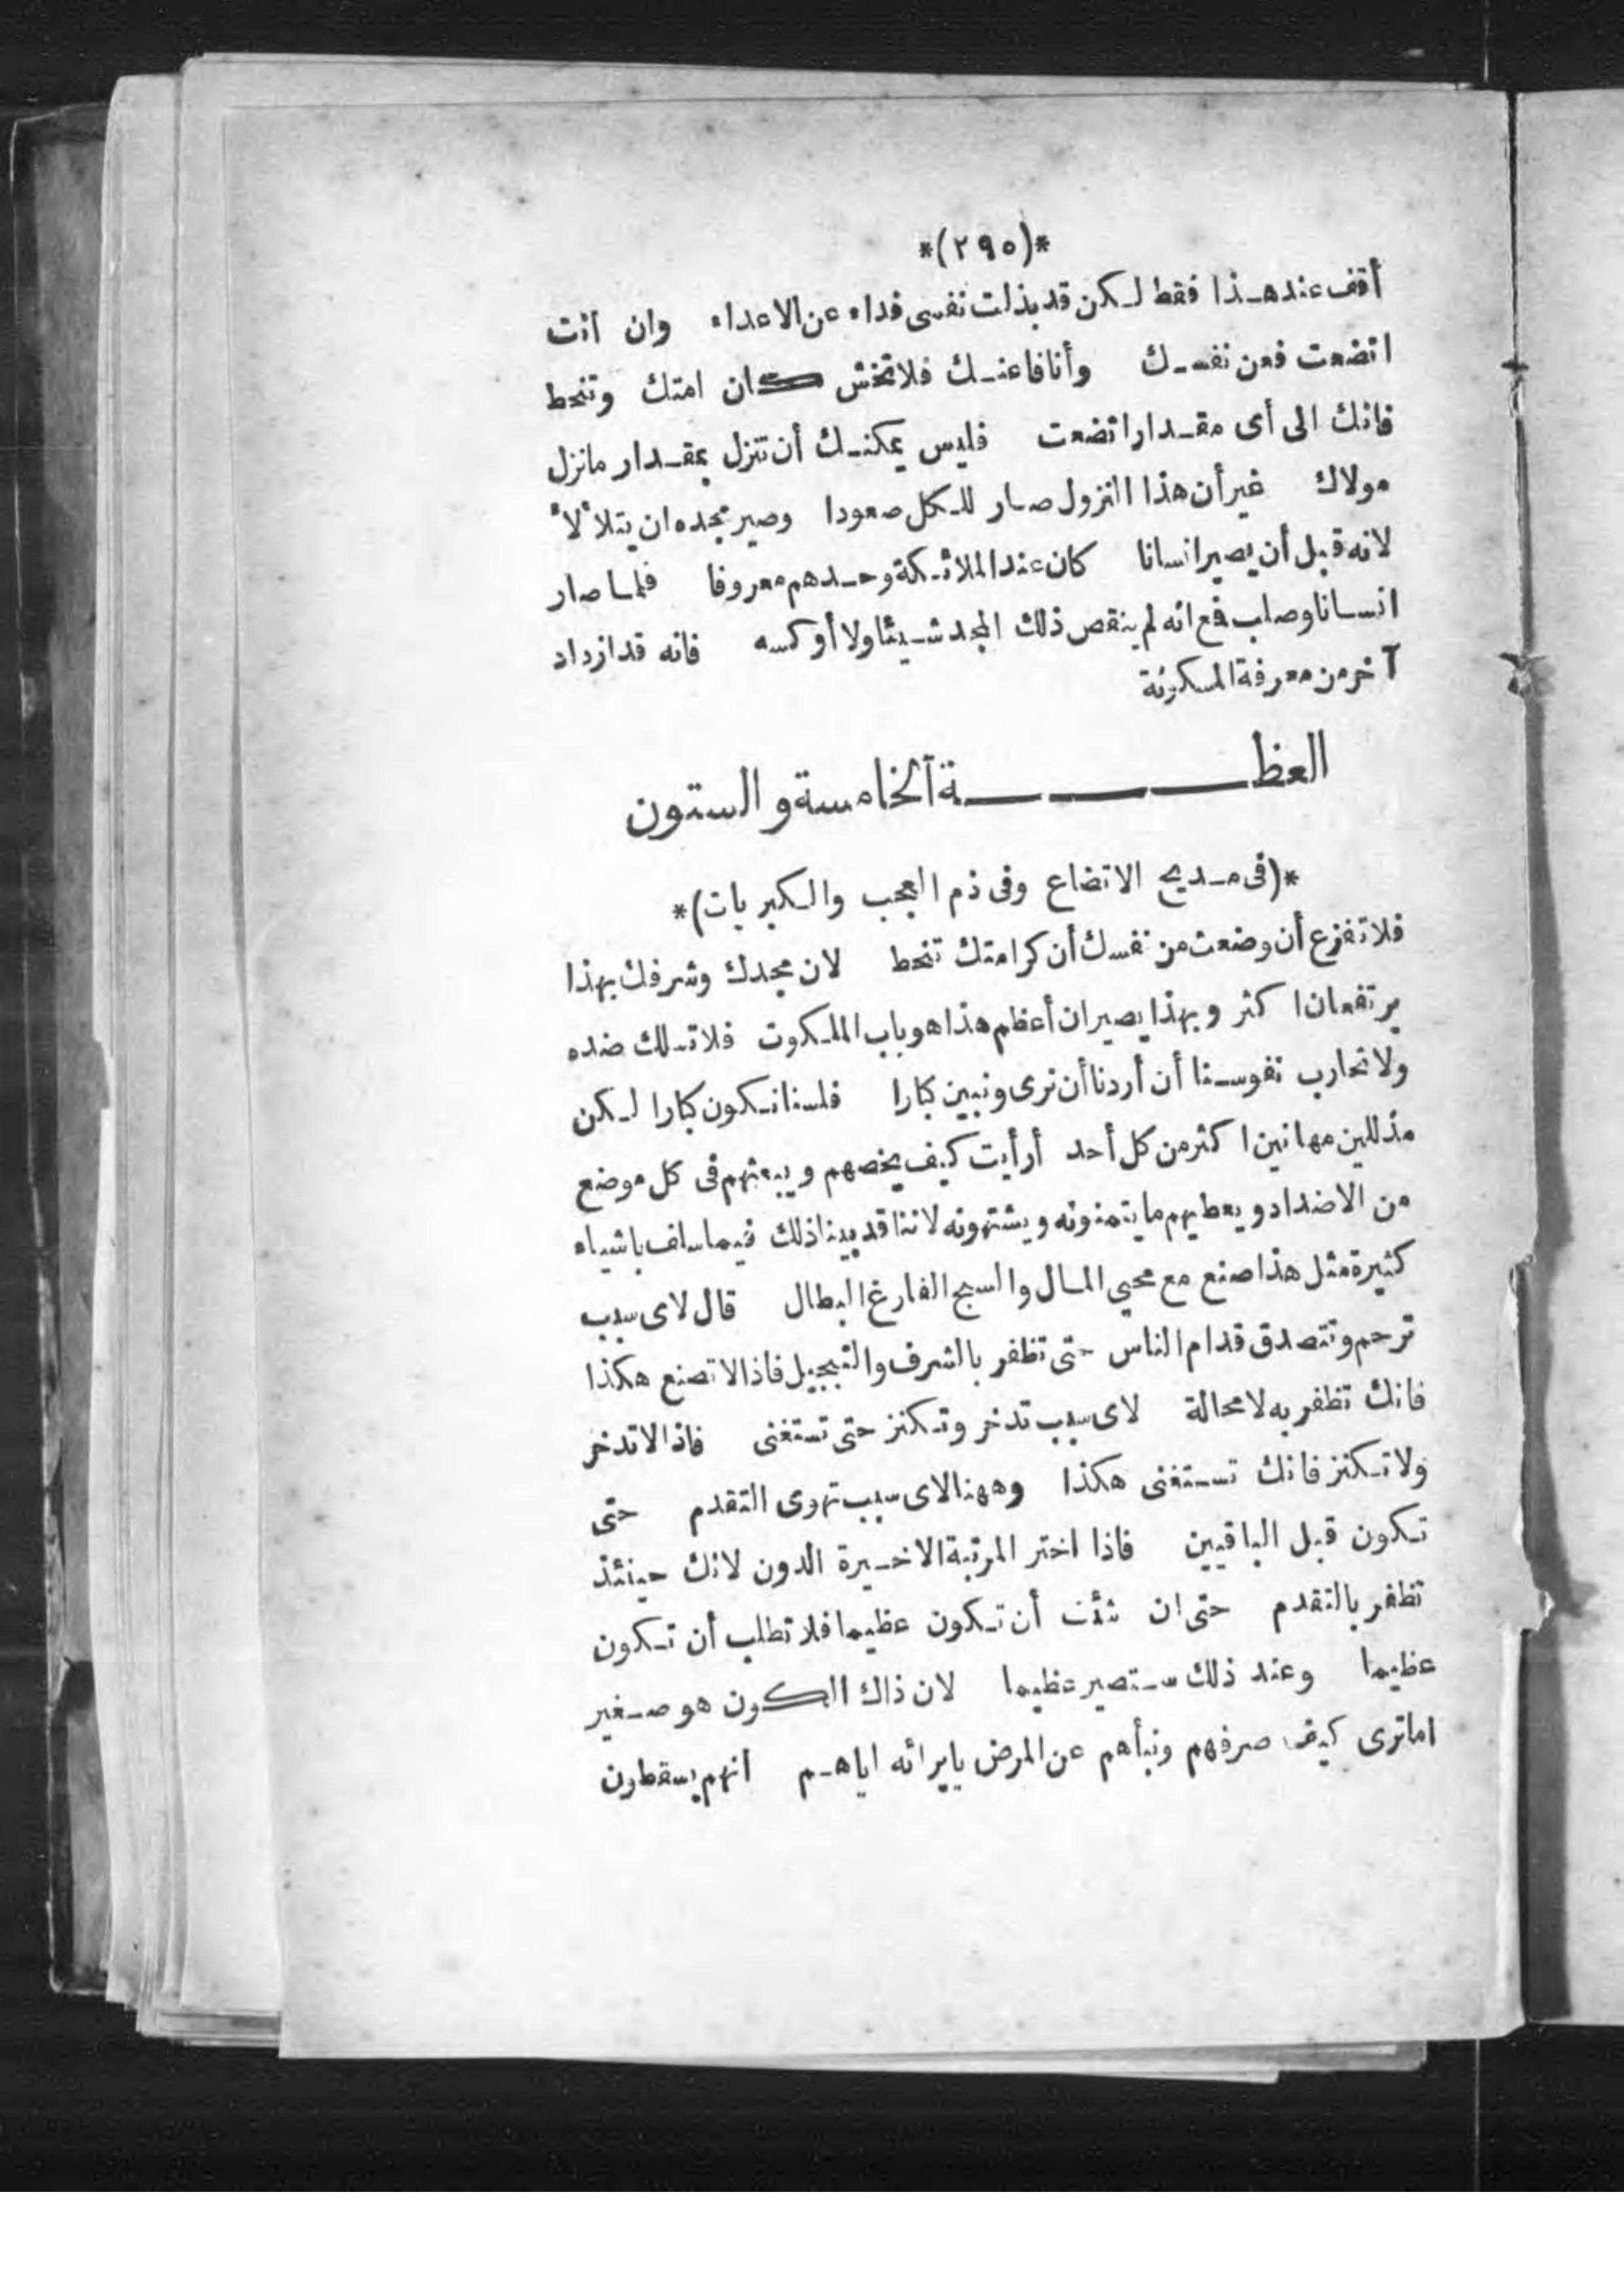 *(٢٩٥)*
أقف عند هـذا فقط لـكن قد بذلت نفسى فداء عن الاعداء وان أنت
اتضعت فعن نفسـك وأنا فاعنـك فلا تخش كان امتك وتنحط
فانك الى أى مقـدار اتضعت فليس يمكنـك أن تنزل بمقـدار مانزل
مولاك غير أن هذا النزول صار للـكل صعودا وصير مجده ان يتلا ًلا ً
لانه قبل أن يصير انسانا كان عند الملائـكة وحـدهم معروفا فلما صار
انسانا وصلب فع انه لم ينقص ذلك المجد شـيئا ولا أوكسه فانه قد ازداد
آخر من معرفة المسكونة
العظــــــة الخامسة و الستون
*(فى مـديح الاتضاع وفى ذم العجب والـكبر يات)*
فلا تفزع أن وضعت من نفسك أن كرامتك تنحط لان مجدك وشرفك بهذا
يرتفعان اكثر وبهذا يصيران أعظم هذا هو باب الملـكوت فلا تـلك ضده
ولا نحارب نفوسـنا أن أردنا أن نرى ونبين كبارا فلسنا نـكون كبارا لـكن
مذللين مهانين اكثر من كل أحد أرأيت كيف يخصهم ويبعثهم فى كل موضع
من الاضداد ويعطيهم ما يتمنونه ويشتهونه لاننا قد بينا ذلك فيما سلف باشياء
كثيرة مثل هذا صنع مع محبي المـال والسبح الفارغ البطال قال لاى سبب
ترحم وتتصدق قدام الناس حتى تظفر بالشرف والتبجيل فاذا لا تصنع هكذا
فانك تظفر به لا محالة لاى سبب تدخر وتـكنز حتى تستغنى فاذا لا تدخر
ولا تـكنز فانك تسـتغنى هكذا وههنا لاى سبب تهوى التقدم حتى
تـكون قبل الباقيين فاذا اختر المرتبة الاخـيرة الدون لانك حينئذ
تظفر بالتقدم حتى ان شئت أن تـكون عظيما فلا تطلب أن تـكون
عظيما وعند ذلك سـتصير عظيما لان ذاك الكون هو صـغير
اما ترى كيف صرفهم ونبأهم عن المرض بايرائه اياهـم انهم يسقطون